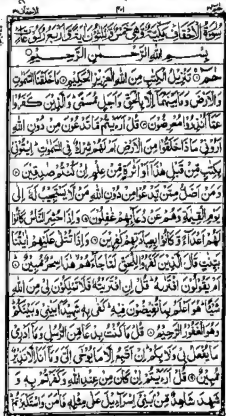 سُوْرَةُ الْاَحْقَافِ مَكِّيَّةٌ وَّهِيَ خَمْسٌ وَّثَلٰثُوْنَ اٰيَةً وَّاَرْبَعُ رُكُوْعَاتٍ
بِسْمِ اللّٰهِ الرَّحْمٰنِ الرَّحِيْمِ
حٰمٓ ۝ تَنْزِيْلُ الْكِتٰبِ مِنَ اللّٰهِ الْعَزِيْزِ الْحَكِيْمِ ۝ مَا خَلَقْنَا السَّمٰوٰتِ
وَالْاَرْضَ وَمَا بَيْنَهُمَآ اِلَّا بِالْحَقِّ وَاَجَلٍ مُّسَمًّى وَالَّذِيْنَ كَفَرُوْا
عَمَّآ اُنْذِرُوْا مُعْرِضُوْنَ ۝ قُلْ اَرَءَيْتُمْ مَّا تَدْعُوْنَ مِنْ دُوْنِ اللّٰهِ
اَرُوْنِيْ مَاذَا خَلَقُوْا مِنَ الْاَرْضِ اَمْ لَهُمْ شِرْكٌ فِي السَّمٰوٰتِ اِيْتُوْنِيْ
بِكِتٰبٍ مِّنْ قَبْلِ هٰذَآ اَوْ اَثٰرَةٍ مِّنْ عِلْمٍ اِنْ كُنْتُمْ صٰدِقِيْنَ ۝
وَمَنْ اَضَلُّ مِمَّنْ يَّدْعُوْا مِنْ دُوْنِ اللّٰهِ مَنْ لَّا يَسْتَجِيْبُ لَهٗٓ اِلٰى
يَوْمِ الْقِيٰمَةِ وَهُمْ عَنْ دُعَآئِهِمْ غٰفِلُوْنَ ۝ وَاِذَا حُشِرَ النَّاسُ كَانُوْا
لَهُمْ اَعْدَآءً وَّكَانُوْا بِعِبَادَتِهِمْ كٰفِرِيْنَ ۝ وَاِذَا تُتْلٰى عَلَيْهِمْ اٰيٰتُنَا
بَيِّنٰتٍ قَالَ الَّذِيْنَ كَفَرُوْا لِلْحَقِّ لَمَّا جَآءَهُمْ هٰذَا سِحْرٌ مُّبِيْنٌ ۝
اَمْ يَقُوْلُوْنَ افْتَرٰىهُ قُلْ اِنِ افْتَرَيْتُهٗ فَلَا تَمْلِكُوْنَ لِيْ مِنَ اللّٰهِ
شَيْـًٔا هُوَ اَعْلَمُ بِمَا تُفِيْضُوْنَ فِيْهِ كَفٰى بِهٖ شَهِيْدًۢا بَيْنِيْ وَبَيْنَكُمْ
وَهُوَ الْغَفُوْرُ الرَّحِيْمُ ۝ قُلْ مَا كُنْتُ بِدْعًا مِّنَ الرُّسُلِ وَمَآ اَدْرِيْ
مَا يُفْعَلُ بِيْ وَلَا بِكُمْ اِنْ اَتَّبِعُ اِلَّا مَا يُوْحٰٓى اِلَيَّ وَمَآ اَنَا اِلَّا نَذِيْرٌ
مُّبِيْنٌ ۝ قُلْ اَرَءَيْتُمْ اِنْ كَانَ مِنْ عِنْدِ اللّٰهِ وَكَفَرْتُمْ بِهٖ وَ
شَهِدَ شَاهِدٌ مِّنْۢ بَنِيْٓ اِسْرَآءِيْلَ عَلٰى مِثْلِهٖ فَاٰمَنَ وَاسْتَكْبَرْتُمْ